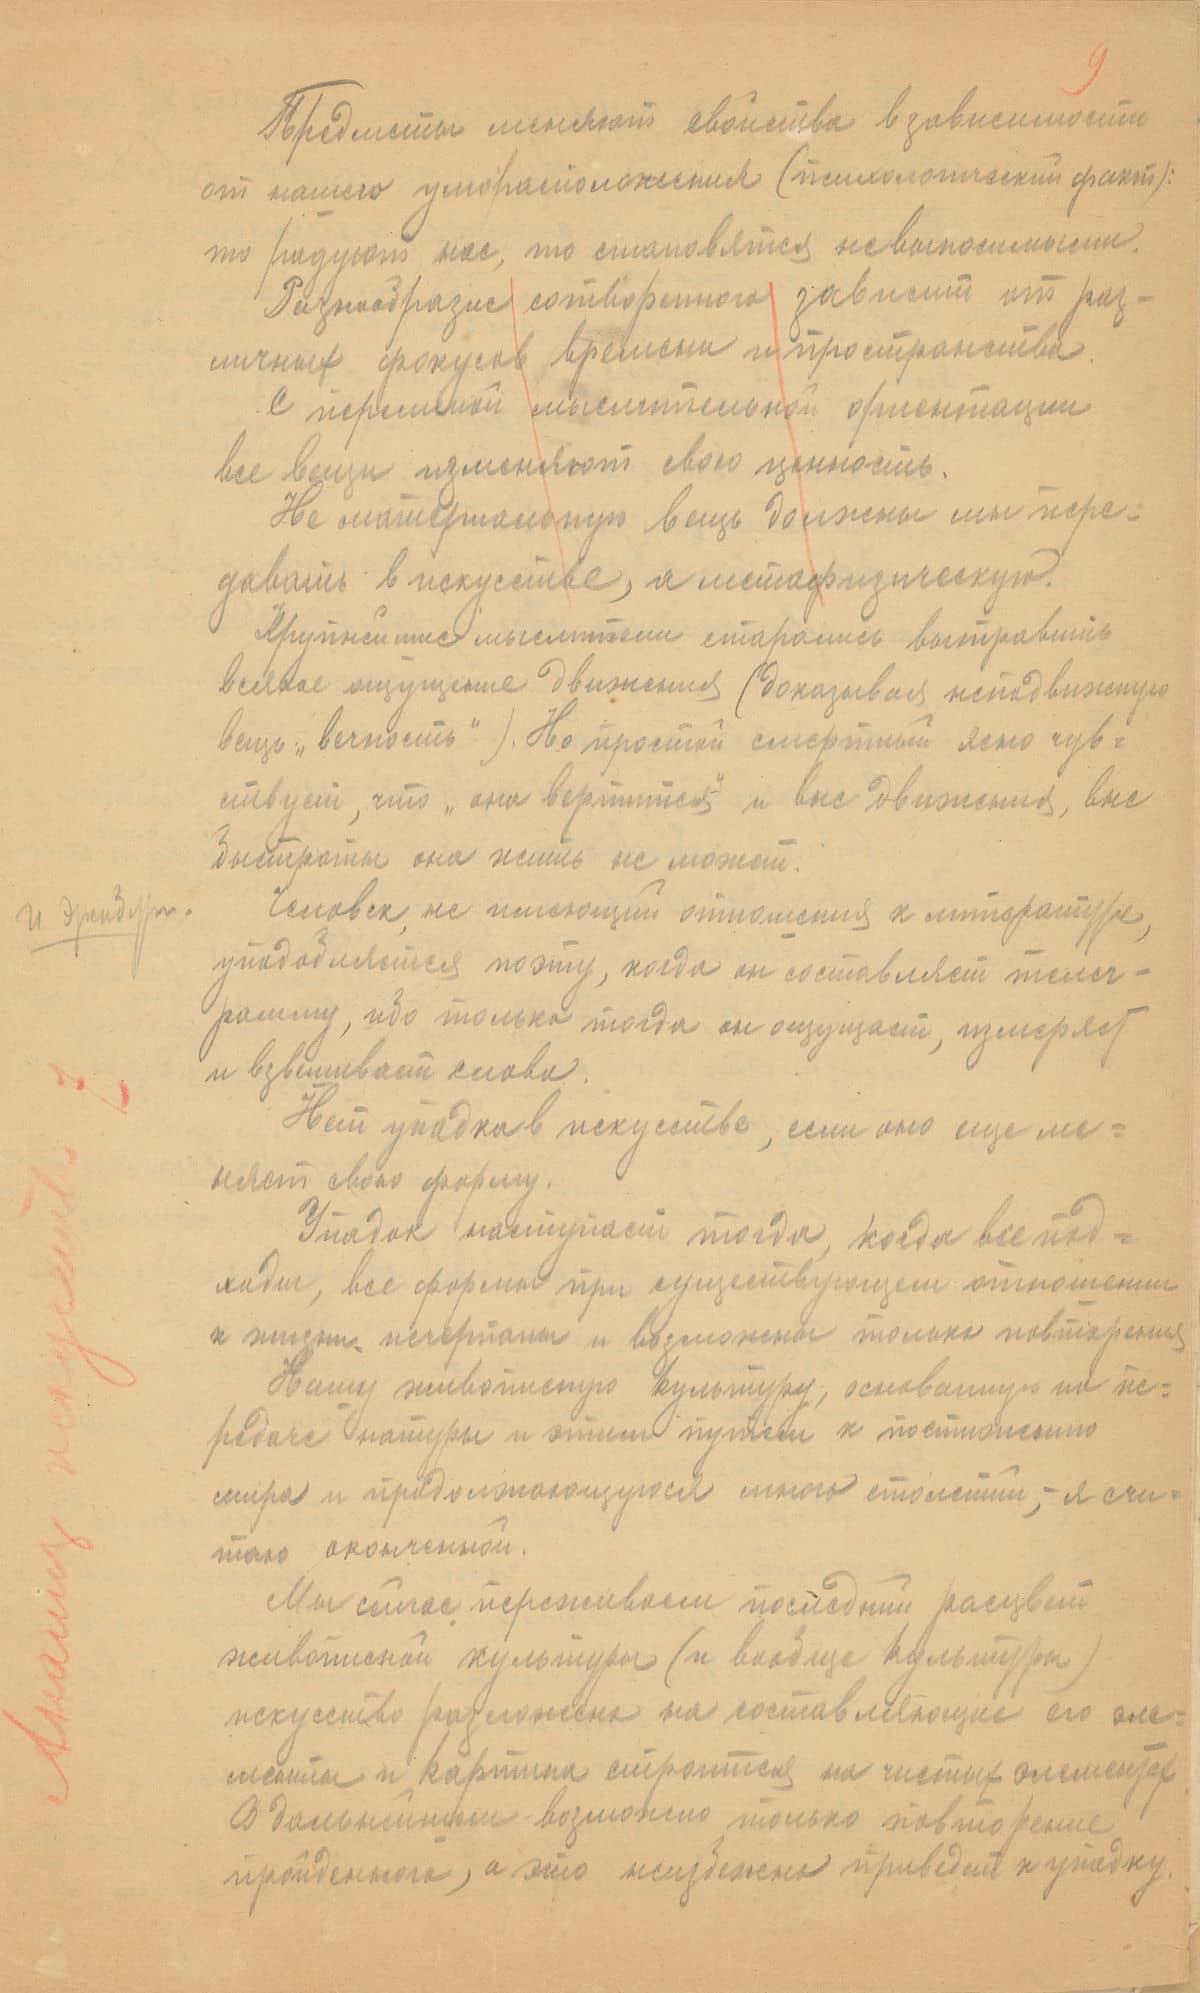 9
Предметы меняют свойства в зависимости
от нашего уморасположения (психологический факт):
то радуют нас, то становятся невыносимыми.
Разнообразие сотворенного зависит от раз-
личных фокусов времени и пространства.
С переменой мыслительной ориентации
все вещи изменяют свою ценность.
Не материальную вещь должны мы пере=
давать в искусстве, а метафизическую.
Крупнейшие мыслители старались вытравить
всякое ощущение движения (доказывая неподвижную
вещь: „вечность“). Но простой смертный ясно чув=
ствует, что „она вертится“ и вне движения, вне
быстроты она жить не может.
Человек, не имеющий отношения к литературе,
уподобляется поэту, когда он составляет телег-
рамму, ибо только тогда он ощущает, измеряет
и взвешивает слова.
Нет упадка в искусстве, если оно еще ме=
няет свою форму.
Упадок наступает тогда, когда все под=
ходы, все формы при существующем отношении
к жизни исчерпаны и возможны только повторения
Нашу живописную культуру, основанную на пе=
редаче натуры и этим путем к постижению
мира и продолжающуюся много столетий, – я счи=
таю оконченной.
Мы сейчас переживаем последний расцвет
живописной культуры (и вообще культуры)
искусство разложено на составляющие его эле=
менты и картина строится на чистых элементах
В дальнейшем возможно только повторение
пройденного, а это неизбежно приведет к упадку.